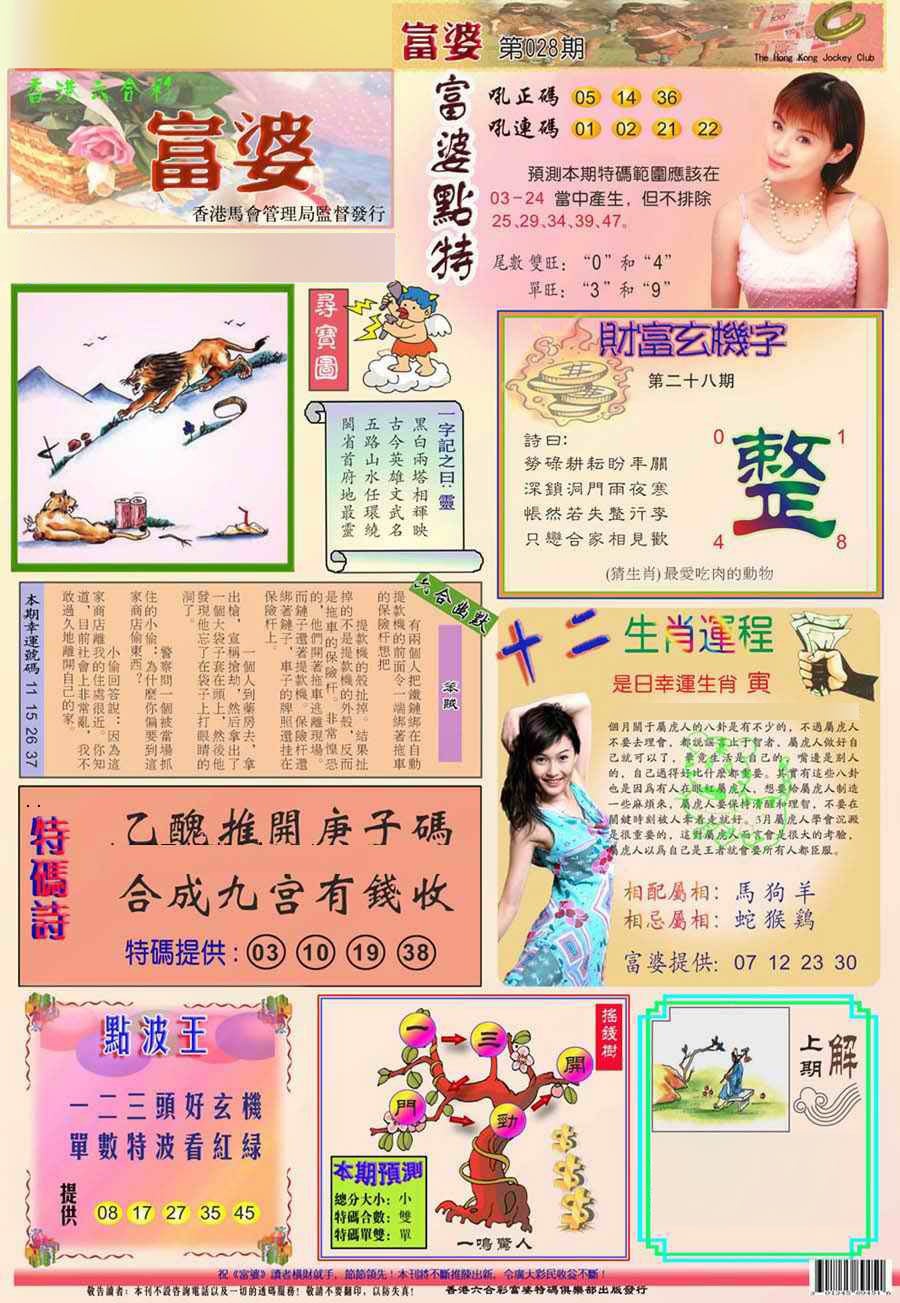 富婆 第028期
The Hong Kong Jockey Club
香港六合彩
富婆
香港馬會管理局監督發行
富婆點特
吼正碼 05 14 36
吼連碼 01 02 21 22
預測本期特碼範圍應該在
03-24 當中產生，但不排除
25、29、34、39、47。
尾數雙旺：“0”和“4”
單旺：“3”和“9”
尋寶圖
一字記之曰：靈
黑白兩塔相輝映
古今英雄文武名
五路山水任環繞
閩省首府地最靈
財富玄機字
第二十八期
詩曰：
勞碌耕耘盼年關
深鎖洞門雨夜寒
悵然若失整行李
只戀合家相見歡
0 1
整
4 8
(猜生肖)最愛吃肉的動物
六合幽默
笨賊
有兩個人把鐵鏈綁在自動
提款機的前面令一端綁著拖車
的保險杆想把
提款機的殼扯掉。結果扯
掉的不是提款機的外殼，反而
是拖車的保險杆。非常惶恐
的，他們開著拖車逃離現場。
而鏈子還著提款機。保險杆還
綁著鏈子，車子的牌照還挂在
保險杆上。
一個人到藥房去，拿
出槍，宣稱搶劫，然后拿出了
一個大袋子套在頭上，然後他
發現他忘了在袋子上打眼睛的
洞了。
警察問一個被當場抓
住的小偷：為什麼你偏要到這
家商店偷東西？
小偷回答說：因為這
家商店離我的住處很近。你知
道，目前社會上非常亂，我不
敢過久地離開自己的家。
本期幸運號碼 11 15 26 37
十二生肖運程
是日幸運生肖 寅
個月關于屬虎人的八卦是有不少的，不過屬虎人
不要去理會，都說謠言止于智者，屬虎人做好自
己就可以了，畢竟生活是自己的，嘴邊是別人
的，自己過得好比什麼都重要。其實有這些八卦
也是因為有人在眼紅屬虎人，想要給屬虎人制造
一些麻煩來，屬虎人要保持清醒和理智，不要在
關鍵時刻被人牽着走就好。3月屬虎人學會沉澱
是很重要的，這對屬虎人而言會是很大的考驗，
屬虎人以爲自己是王者就會要所有人都臣服。
相配屬相：馬狗羊
相忌屬相：蛇猴鷄
富婆提供：07 12 23 30
特碼詩
乙醜推開庚子碼
合成九宮有錢收
特碼提供：03 10 19 38
點波王
一二三頭好玄機
單數特波看紅綠
提供 08 17 27 35 45
搖錢樹
一 三
門 勁 開
本期預測
總分大小：小
特碼合數：雙
特碼單雙：單
一鳴驚人
解上期
祝《富婆》讀者橫財就手，節節領先！本刊將不斷推陳出新，令廣大彩民收益不斷！
敬告讀者：本刊不設咨詢電話以及一切的透碼服務！敬請不要翻印，以防失真！
香港六合彩富婆特碼俱樂部出版發行